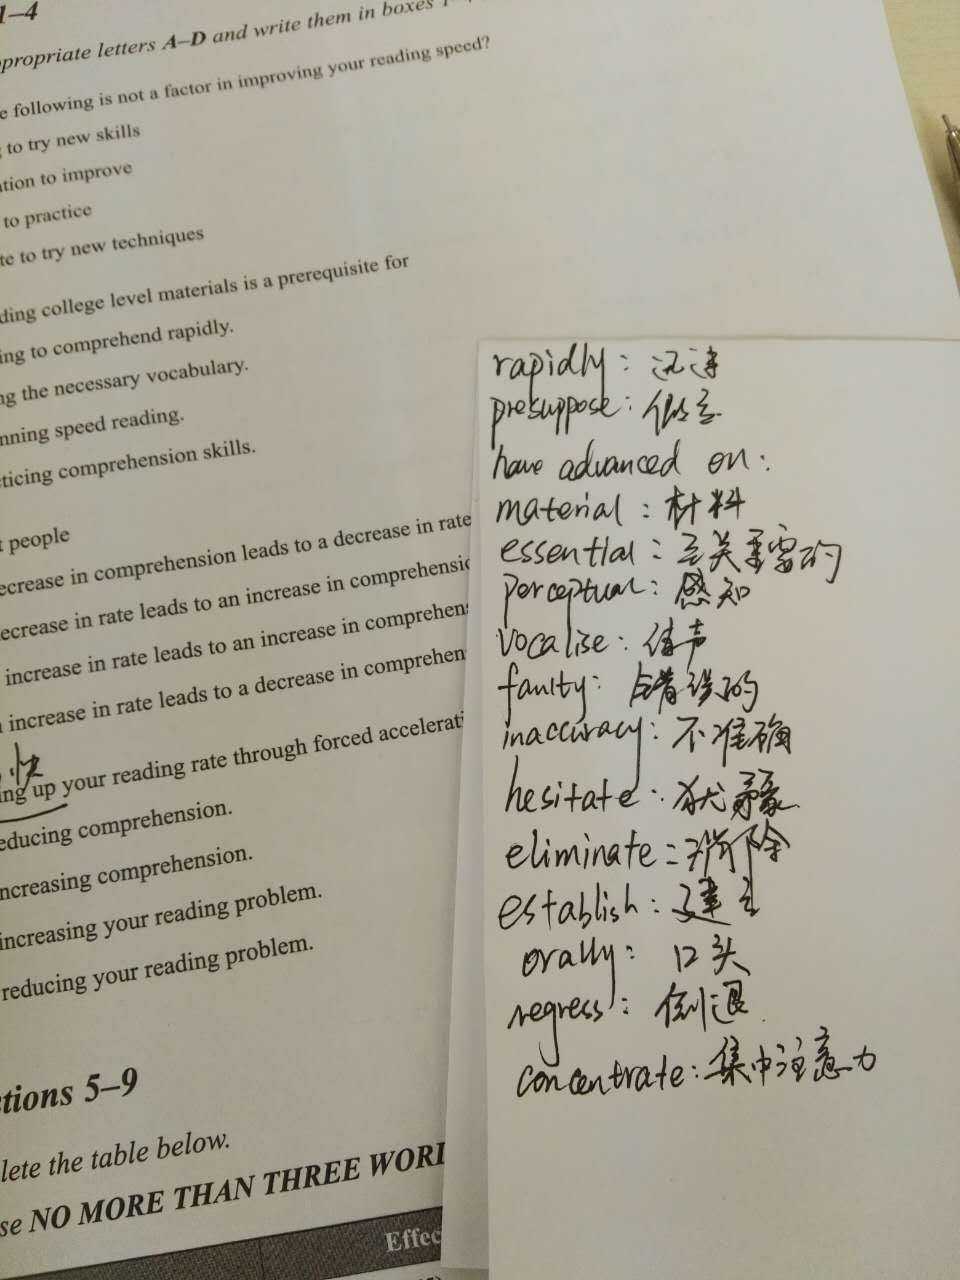 1–4
ppropriate letters A–D and write them in boxes 1
e following is not a factor in improving your reading speed?
to try new skills
ation to improve
to practice
te to try new techniques
ding college level materials is a prerequisite for
ing to comprehend rapidly.
ng the necessary vocabulary.
nning speed reading.
cticing comprehension skills.
t people
ecrease in comprehension leads to a decrease in rate
ecrease in rate leads to an increase in comprehensic
increase in rate leads to an increase in comprehen
n increase in rate leads to a decrease in comprehen
快
ing up your reading rate through forced accelerati
educing comprehension.
ncreasing comprehension.
increasing your reading problem.
reducing your reading problem.
tions 5–9
lete the table below.
se NO MORE THAN THREE WORD
Effec
rapidly: 迅速
presuppose: 假定
have advanced on:
material: 材料
essential: 至关重要的
perceptual: 感知
vocalise: 传声
faulty: 错误的
inaccuracy: 不准确
hesitate: 犹豫
eliminate: 消除
establish: 建立
orally: 口头
regress: 倒退
concentrate: 集中注意力